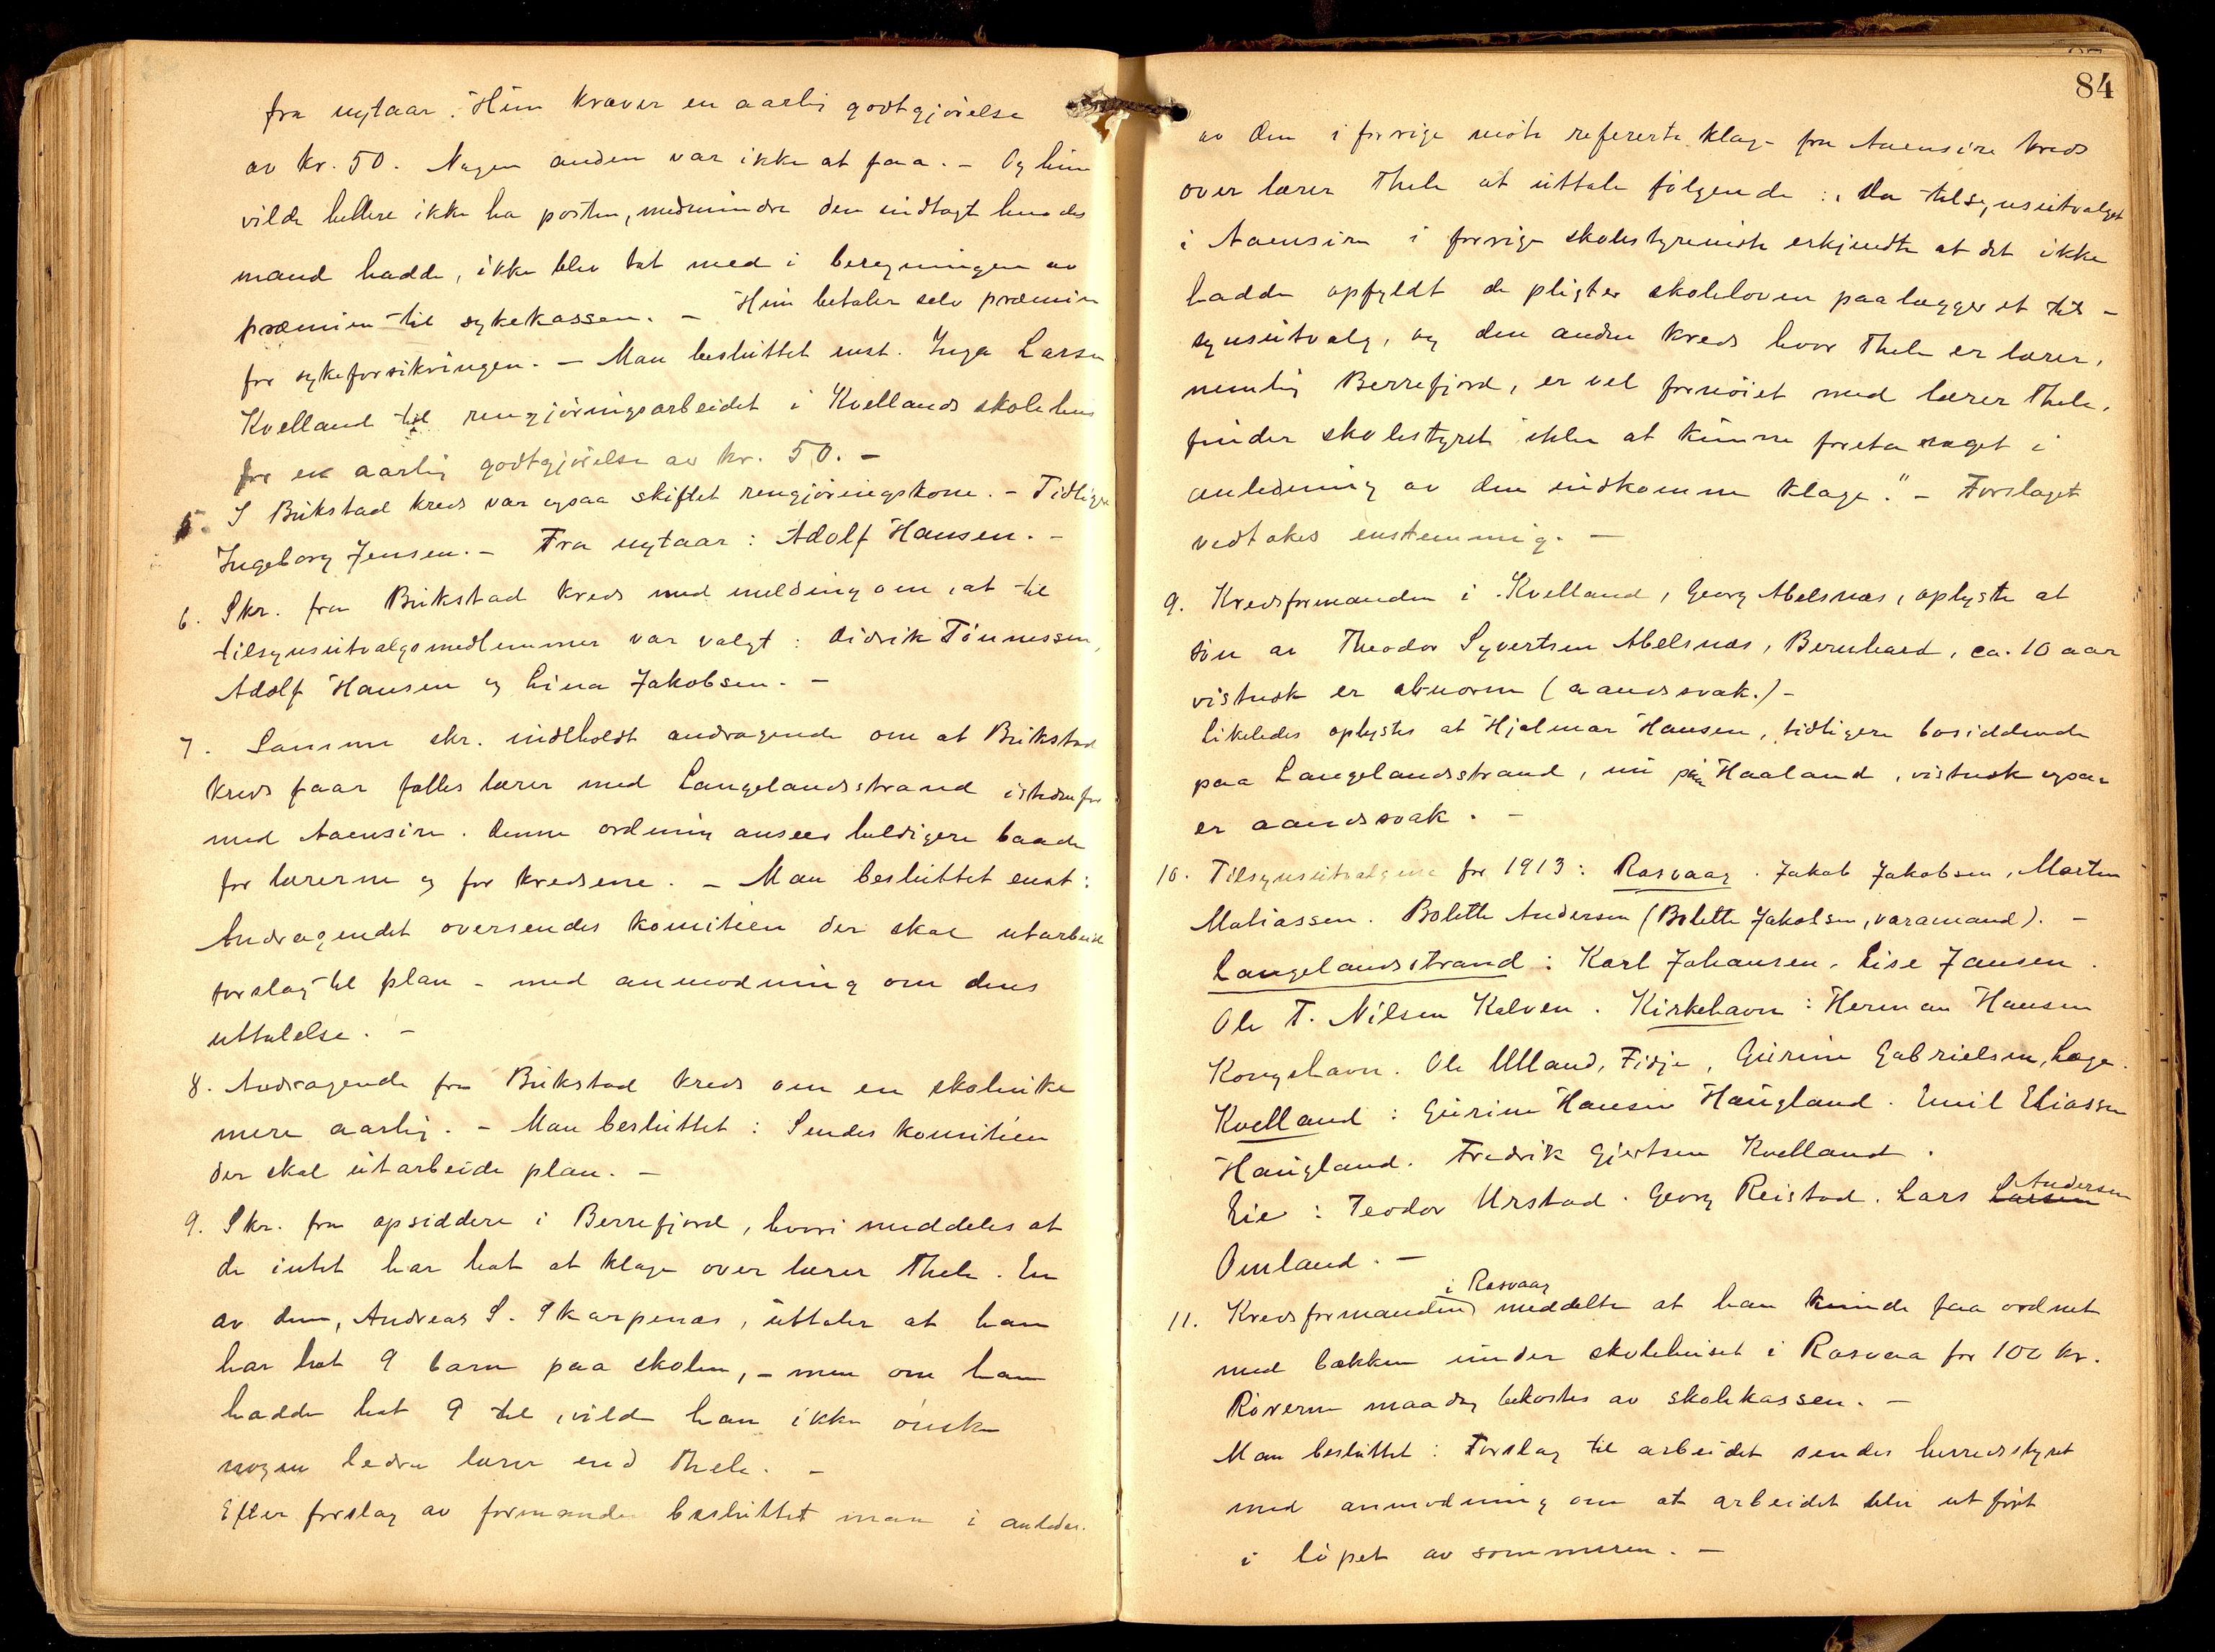 fra nytaar. Hun kræver en aarlig godtgjörelse
av kr. 50. Nogen anden var ikke at faa. - Og hun
vilde hellere ikke ha posten, medmindre den indtægt hendes
mand hadde, ikke blev tat med i beregningen av
præmien til sykekassen. - Hun betaler selv præmien
for sykeforsikringen. - Man besluttet enst. Inga Larsen
Kvelland til rengjöringsarbeidet i Kvellands skolehus
for en aarlig godtgjörelse av kr. 50. -
5. I Bukstad kreds var ogsaa skiftet rengjöringskone. - Tidligere
Ingeborg Jensen. - Fra nytaar: Adolf Hansen. -
6. Skr. fra Bukstad kreds med melding om, at til
tilsynsutvalgsmedlemmer var valgt: Didrik Tönnessen,
Adolf Hansen og Lina Jakobsen. -
7. Samme skr. indeholdt andragende om at Bukstad
kreds faar fælles lærer med Langelandsstrand istedenfor
med Aaensire. Denne ordning ansees heldigere baade
for lærerne og for kredsene. - Man besluttet enst:
Andragendet oversendes komitéen der skal utarbeide
forslag til plan - med anmodning om dens
uttalelse. -
8. Andragende fra Bukstad kreds om en skoleuke
mere aarlig. - Man besluttet: Sendes komitéen
der skal utarbeide plan. -
9. Skr. fra opsiddere i Berrefjord, hvori meddeles at
de intet har hat at klage over lærer Thele. En
av dem, Andreas S. Skarpenæs, uttaler at han
har hat 9 barn paa skolen, - men om han
hadde hat 9 til, vilde han ikke önske
nogen bedre lærer end Thele. -
Efter forslag av formanden besluttet man i anledn.
84
av den i forrige möte refererte klage fra Aaensire kreds
over lærer Thele at uttale fölgende: "Da tilsynsutvalget
i Aaensire i forrige skolestyremöte erkjendte at det ikke
hadde opfyldt de pligter skoleloven paalægger et til-
synsutvalg, og den anden kreds hvor Thele er lærer,
nemlig Berrefjord, er vel fornöiet med lærer Thele,
finder skolestyret ikke at kunne foreta noget i
anledning av den indkomne klage." - Forslaget
vedtokes enstemmig. -
9. Kredsformanden i Kvelland, Georg Abelsnæs, oplyste at
sön av Theodor Syvertsen Abelsnæs, Bernhard, ca. 10 aar
vistnok er abnorm (aandssvak.) -
Likeledes oplystes at Hjalmar Hansen, tidligere bosiddende
paa Langelandsstrand, nu paa Haaland, vistnok ogsaa
er aandssvak. -
10. Tilsynsutvalgene for 1913: Rasvaag. Jakob Jakobsen, Morten
Matiassen. Bolette Andersen (Bolette Jakobsen, varamand). -
Langelandsstrand: Karl Johansen. Lise Jansen.
Ole T. Nilsen Kalven. Kirkehavn: Herman Hansen
Kongshavn. Ole Ulland, Fidje, Gurine Gabrielsen, Lage.
Kvelland: Gurine Hansen Haugland. Emil Eliassen
Haugland. Fredrik Gjertsen Kvelland.
Eie: Teodor Urstad. Georg Reistad. Lars Larsen Andersen
Omland. -
11. Kredsformanden i Rasvaag meddelte at han kunde faa ordnet
med bækken under skolehuset i Rasvaa for 100 kr.
Rörerne maa dog bekostes av skolekassen. -
Man besluttet: Forslag til arbeidet sendes herredstyret
med anmodning om at arbeidet blir utfört
i löpet av sommeren. -